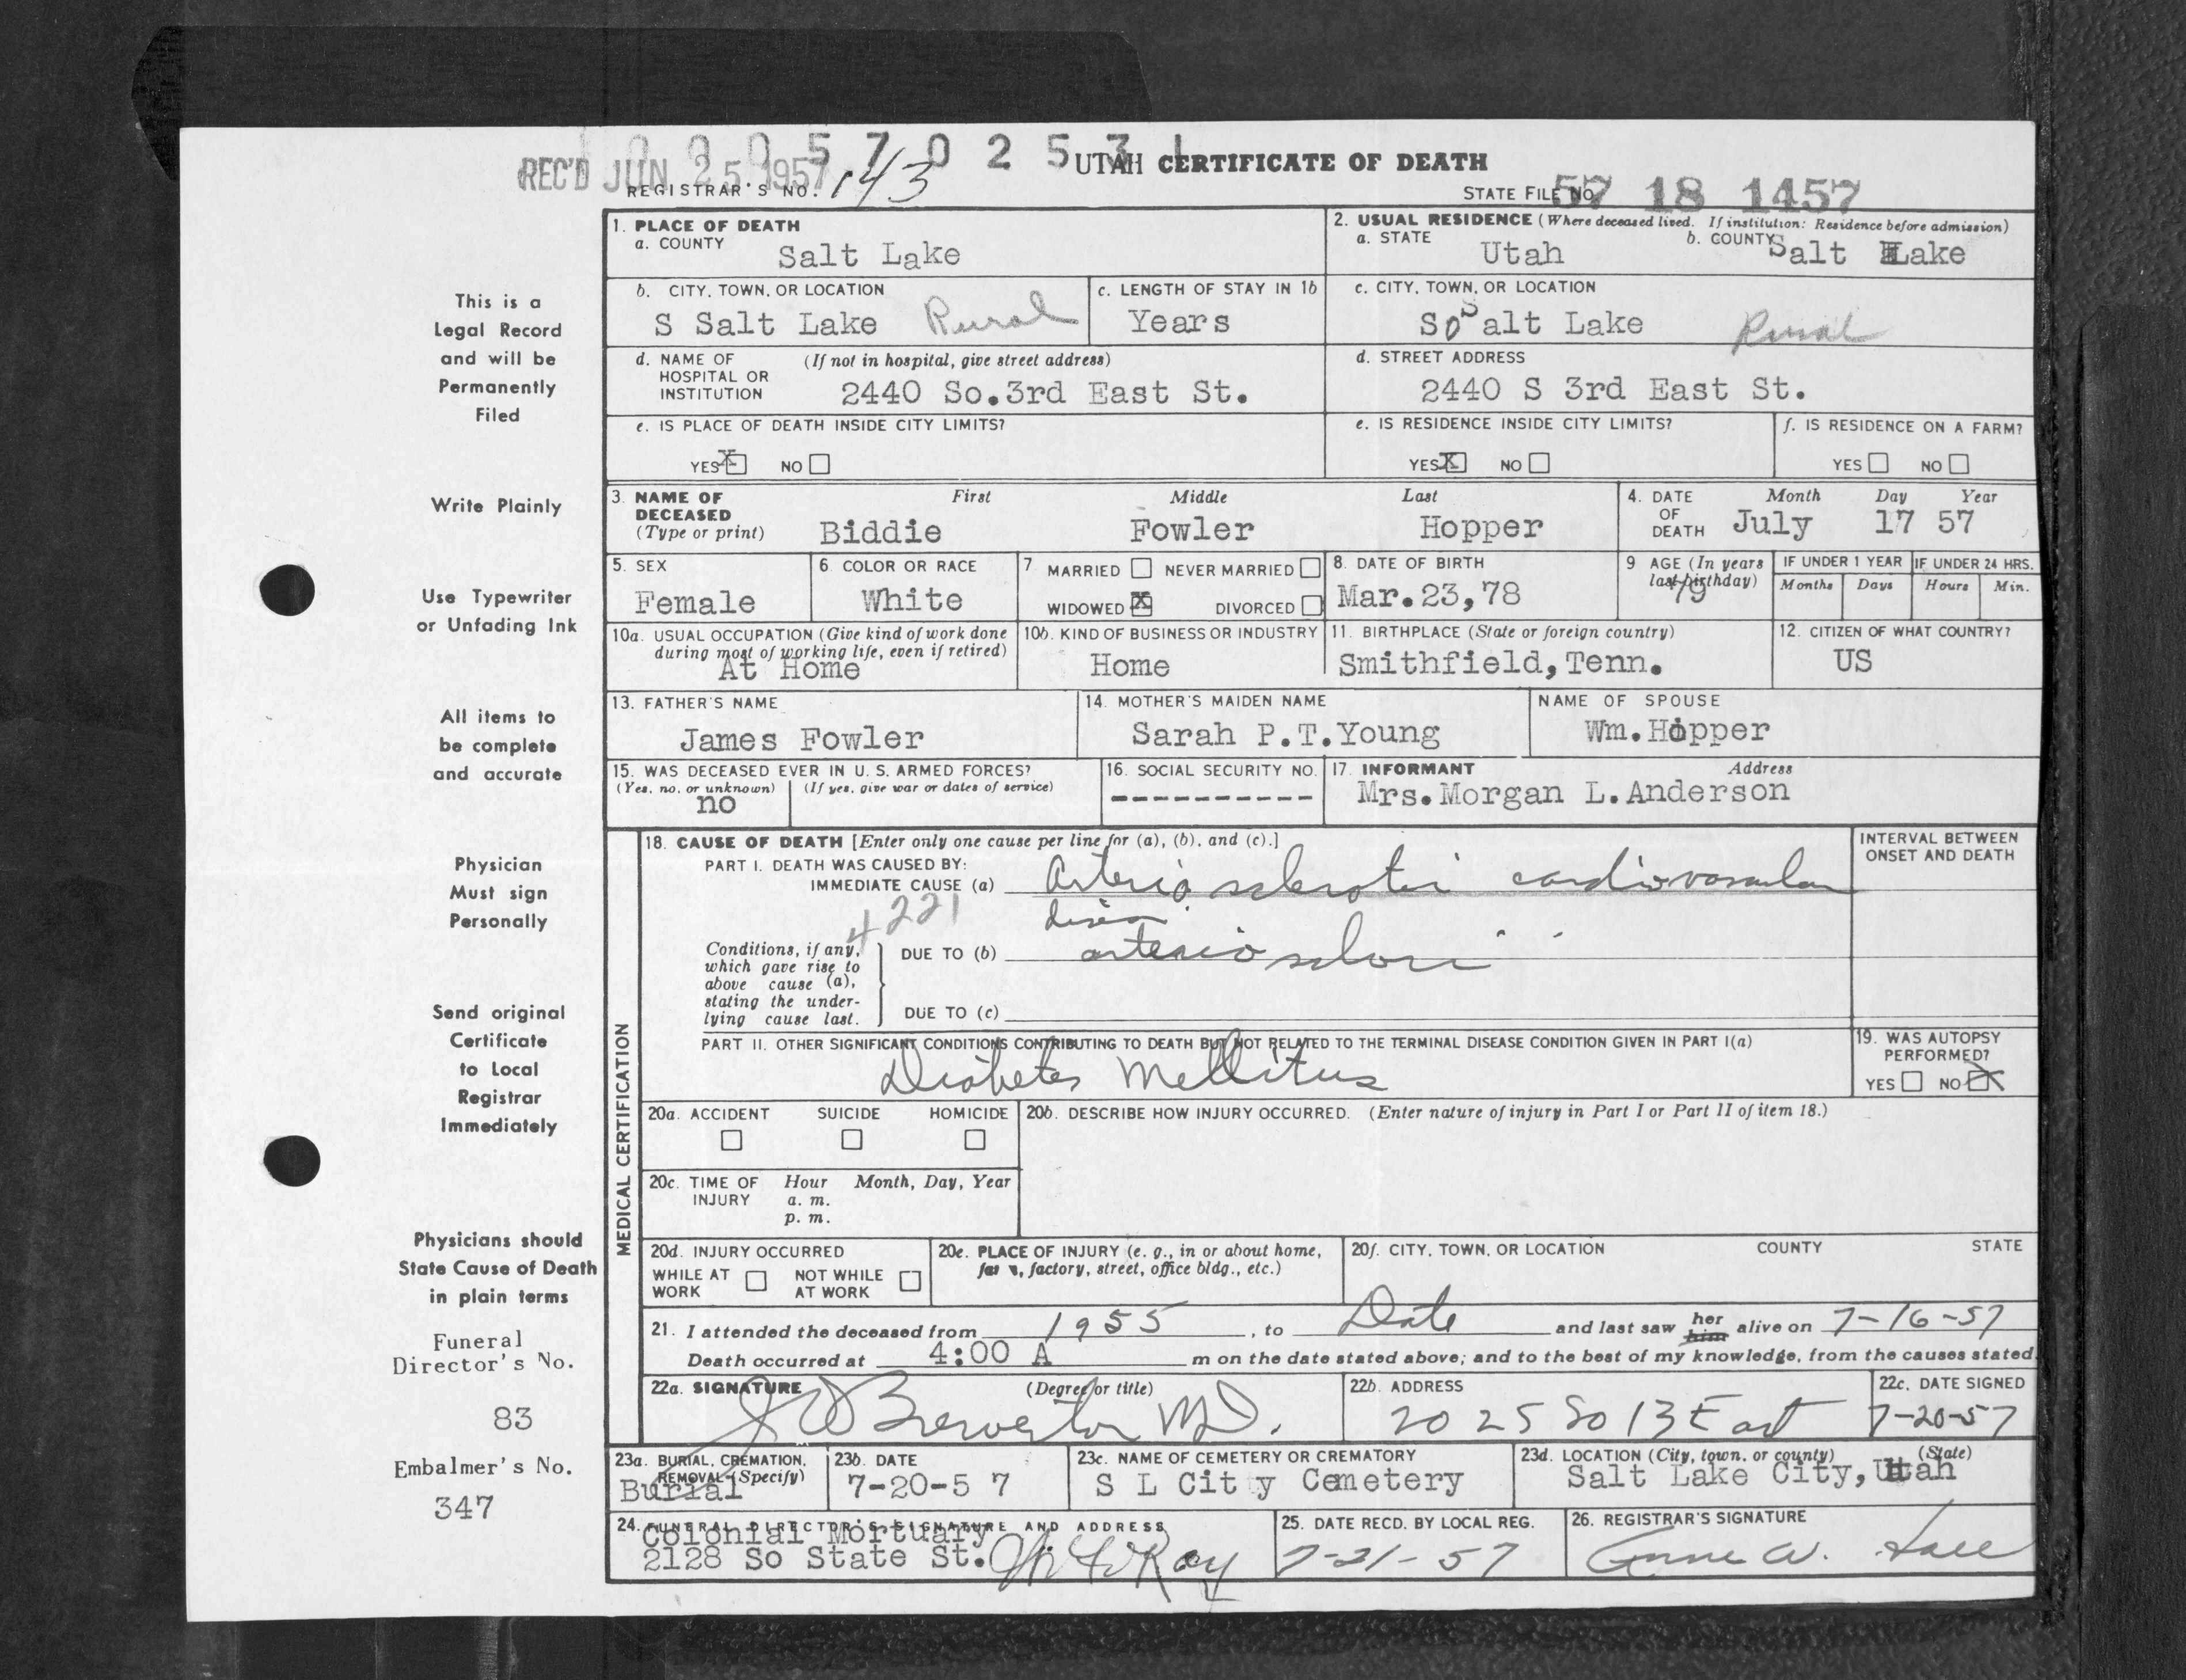 0 0 0 5 7 0 2 5 3 1
REC'D JUN 25 1957
UTAH CERTIFICATE OF DEATH
REGISTRAR'S NO. 143
STATE FILE NO. 57 18 1457
1. PLACE OF DEATH
a. COUNTY Salt Lake
2. USUAL RESIDENCE (Where deceased lived. If institution: Residence before admission)
a. STATE Utah b. COUNTY Salt Lake
b. CITY, TOWN, OR LOCATION
S Salt Lake Rural
c. LENGTH OF STAY IN 1b
Years
c. CITY, TOWN, OR LOCATION
So Salt Lake Rural
d. NAME OF HOSPITAL OR INSTITUTION (If not in hospital, give street address)
2440 So.3rd East St.
d. STREET ADDRESS
2440 S 3rd East St.
e. IS PLACE OF DEATH INSIDE CITY LIMITS?
YES X NO
e. IS RESIDENCE INSIDE CITY LIMITS?
YES X NO
f. IS RESIDENCE ON A FARM?
YES NO
3. NAME OF DECEASED (Type or print)
First Middle Last
Biddie Fowler Hopper
4. DATE OF DEATH
Month Day Year
July 17 57
5. SEX
Female
6 COLOR OR RACE
White
7 MARRIED NEVER MARRIED
WIDOWED X DIVORCED
8. DATE OF BIRTH
Mar.23,78
9 AGE (In years last birthday)
79
IF UNDER 1 YEAR
Months Days
IF UNDER 24 HRS.
Hours Min.
10a. USUAL OCCUPATION (Give kind of work done during most of working life, even if retired)
At Home
10b. KIND OF BUSINESS OR INDUSTRY
Home
11. BIRTHPLACE (State or foreign country)
Smithfield,Tenn.
12. CITIZEN OF WHAT COUNTRY?
US
13. FATHER'S NAME
James Fowler
14. MOTHER'S MAIDEN NAME
Sarah P.T.Young
NAME OF SPOUSE
Wm.Hopper
15. WAS DECEASED EVER IN U. S. ARMED FORCES?
(Yes, no, or unknown) (If yes, give war or dates of service)
no
16. SOCIAL SECURITY NO.
----------
17. INFORMANT Address
Mrs.Morgan L.Anderson
MEDICAL CERTIFICATION
18. CAUSE OF DEATH [Enter only one cause per line for (a), (b), and (c).]
PART I. DEATH WAS CAUSED BY:
IMMEDIATE CAUSE (a) Arterio sclerotic cardiovascular
4221
INTERVAL BETWEEN ONSET AND DEATH
Conditions, if any, which gave rise to above cause (a), stating the underlying cause last.
DUE TO (b)
DUE TO (c)
PART II. OTHER SIGNIFICANT CONDITIONS CONTRIBUTING TO DEATH BUT NOT RELATED TO THE TERMINAL DISEASE CONDITION GIVEN IN PART I(a)
Diabetes Mellitus
19. WAS AUTOPSY PERFORMED?
YES NO X
20a. ACCIDENT SUICIDE HOMICIDE
20b. DESCRIBE HOW INJURY OCCURRED. (Enter nature of injury in Part I or Part II of item 18.)
20c. TIME OF INJURY Hour Month, Day, Year
a. m.
p. m.
20d. INJURY OCCURRED
WHILE AT WORK NOT WHILE AT WORK
20e. PLACE OF INJURY (e. g., in or about home, farm, factory, street, office bldg., etc.)
20f. CITY, TOWN, OR LOCATION COUNTY STATE
21. I attended the deceased from 1955, to Date and last saw her him alive on 7-16-57
Death occurred at 4:00 A m on the date stated above; and to the best of my knowledge, from the causes stated.
22a. SIGNATURE (Degree or title)
MD.
22b. ADDRESS
2025 So 13 East
22c. DATE SIGNED
7-20-57
23a. BURIAL, CREMATION, REMOVAL (Specify)
Burial
23b. DATE
7-20-5 7
23c. NAME OF CEMETERY OR CREMATORY
S L City Cemetery
23d. LOCATION (City, town, or county) (State)
Salt Lake City,Utah
24. FUNERAL DIRECTOR'S SIGNATURE AND ADDRESS
Colonial Mortuary
2128 So State St.
25. DATE RECD. BY LOCAL REG.
7-21-57
26. REGISTRAR'S SIGNATURE
This is a
Legal Record
and will be
Permanently
Filed
Write Plainly
Use Typewriter
or Unfading Ink
All items to
be complete
and accurate
Physician
Must sign
Personally
Send original
Certificate
to Local
Registrar
Immediately
Physicians should
State Cause of Death
in plain terms
Funeral
Director's No.
83
Embalmer's No.
347